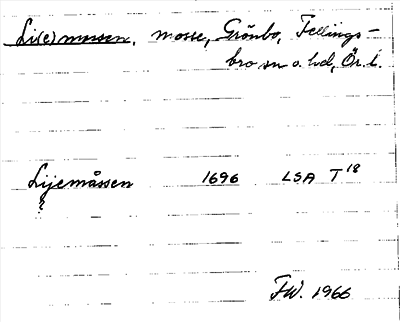 Li(e)mossen, mosse, Grönbo, Fellings-
bro sn o. hd, Ör. l.
Lijemåssen 1696 LSA T 18
FW. 1966